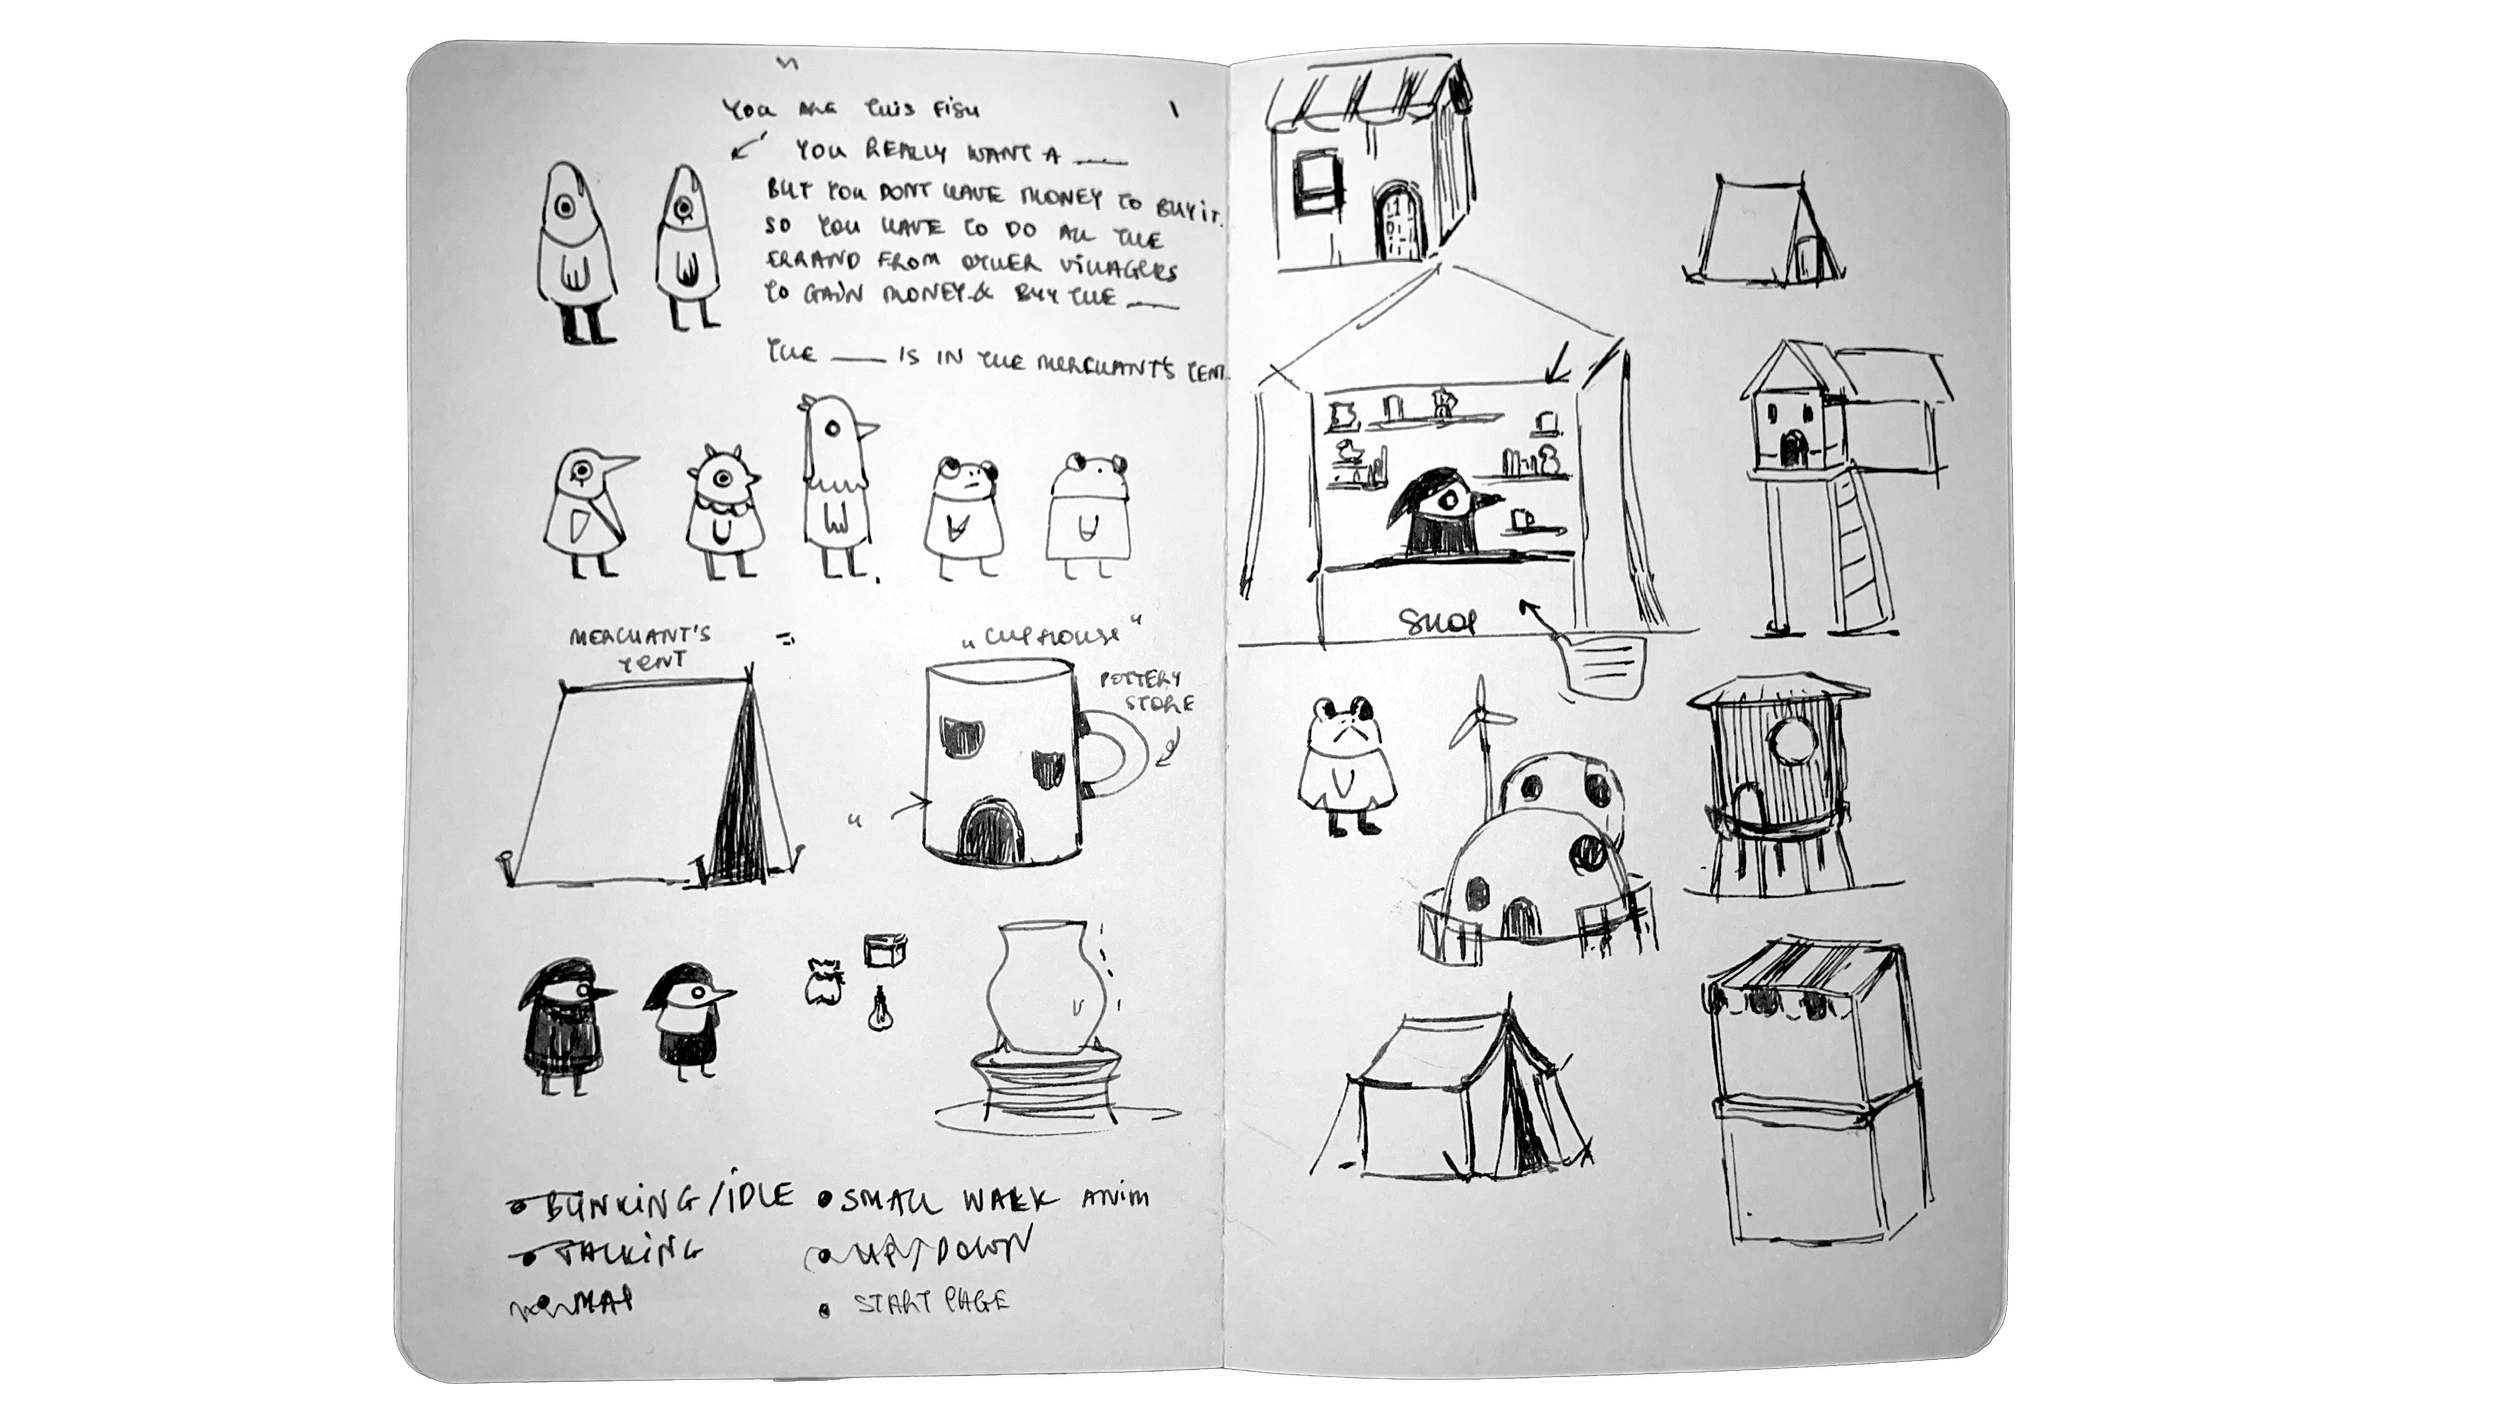 YOU ARE THIS FISH
YOU REALLY WANT A ___
BUT YOU DONT HAVE MONEY TO BUY IT.
SO YOU HAVE TO DO ALL THE
ERRAND FROM OTHER VILLAGERS
TO GAIN MONEY & BUY THE ___
THE ___ IS IN THE MERCHANT'S TENT.
MERCHANT'S
TENT
"CUP HOUSE"
POTTERY
STORE
SHOP
• BLINKING/IDLE • SMALL WALK ANIM
• TALKING • UP/DOWN
• MAP • START PAGE